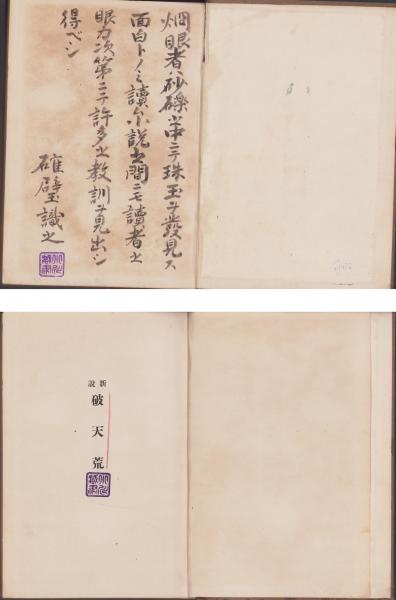 烱眼者ハ砂礫之中ニテ珠玉ヲ發見ス
面白トノミ讀ム小説之間ニモ讀者之
眼力次第ニテ許多之教訓ヲ見出シ
得ベシ
碓璧識之
新説
破天荒